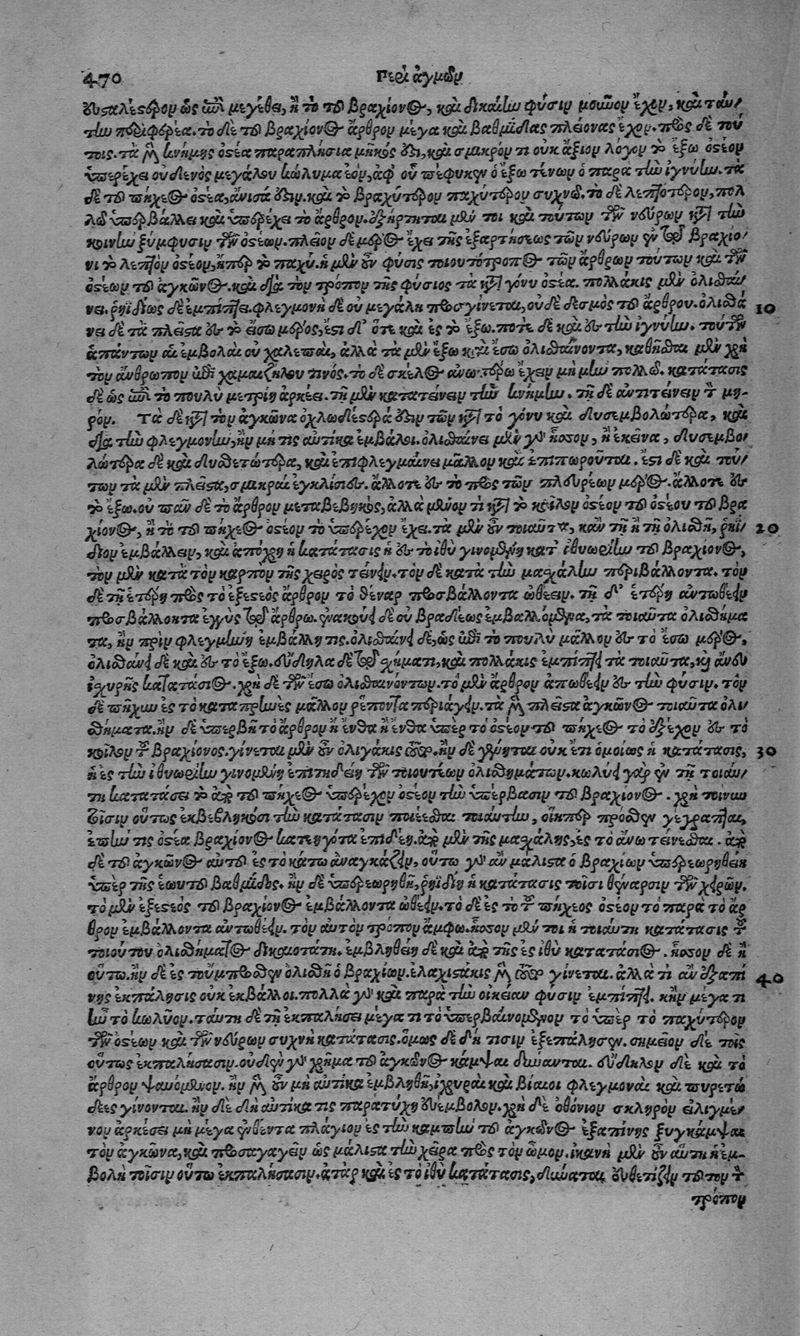 470 Περὶ ἀγμῶν
εὐσταλέστερον ὡς ἐπὶ μεγέθει, ἢ τὸ τοῦ βραχίονος, καὶ δικαίην φύσιν μοῦνον ἔχον, καὶ ταύ-
την περιφερέα. τὸ δὲ τοῦ βραχίονος ἄρθρον μέγα καὶ βαθμίδας πλέονας ἔχον. πρὸς δὲ τού
τοις. τὰ μὲν κνήμης ὀστέα παραπλήσια μῆκός ἐστι, καὶ σμικρόν τι οὐκ ἄξιον λόγου τὸ ἔξω ὀστέον
ὑπερέχει οὐδενὸς μεγάλου κώλυμα ἐὸν, ἀφ' οὗ πέφυκεν ὁ ἔξω τένων ὁ παρὰ τὴν ἰγνύην. τὰ
δὲ τοῦ πήχεος ὀστέα, ἄνισά ἐστιν. καὶ τὸ βραχύτερον παχύτερον συχνῷ. τὸ δὲ λεπτότερον, πολ
λῷ ὑπερβάλλει καὶ ὑπερέχει τὸ ἄρθρον. ἐξήρτηται μέν τοι καὶ τοῦτον τῶν νεύρων κατὰ τὴν
κοινὴν ξύμφυσιν τῶν ὀστέων. πλεῖον δὲ μέρος ἔχει τῆς ἐξαρτήσεως τῶν νεύρων ἐν τῷ βραχίο-
νι τὸ λεπτὸν ὀστέον, ἤπερ τὸ παχύ. ἡ μὲν οὖν φύσις τοιουτότροπος τῶν ἄρθρων τούτων καὶ τῶν
ὀστέων τοῦ ἀγκῶνος. καὶ διὰ τὸν τρόπον τῆς φύσιος τὰ κατὰ γόνυ ὀστέα. πολλάκις μὲν ὀλισθάν-
νει. ῥηϊδίως δὲ ἐμπίπτει. φλεγμονὴ δὲ οὐ μεγάλη προσγίνεται, οὐδὲ δεσμὸς τοῦ ἄρθρου. ὀλισθά 10
νει δὲ τὰ πλεῖστα ἐς τὸ εἴσω μέρος, ἔστι δ' ὅτε καὶ ἐς τὸ ἔξω. ποτὲ δὲ καὶ ἐς τὴν ἰγνύην. τούτων
ἁπάντων αἱ ἐμβολαὶ οὐ χαλεπαὶ, ἀλλὰ τὰ μὲν ἔξω καὶ ἔσω ὀλισθάνοντα, καθῆσθαι μὲν χρὴ
τὸν ἄνθρωπον ἐπὶ χαμαιζήλου τινός. τὸ δὲ σκέλος ἀνωτέρω ἔχειν μὴ μὴν πολλῷ. κατάτασις
δὲ ὡς ἐπὶ τὸ πουλὺ μετρίη ἀρκέει. τῇ μὲν κατατείνειν τὴν κνήμην. τῇ δὲ ἀντιτείνειν τὸν μη-
ρόν. Τὰ δὲ κατὰ τὸν ἀγκῶνα ὀχλωδέστερά ἐστιν τῶν κατὰ τὸ γόνυ καὶ δυσεμβολώτερα, καὶ
διὰ τὴν φλεγμονὴν, ἢν μή τις αὐτίκα ἐμβάλοι. ὀλισθάνει μὲν γὰρ ἧσσον, ἢ ἐκεῖνα, δυσεμβο-
λώτερα δὲ καὶ δυσθετώτερα, καὶ ἐπιφλεγμαίνει μᾶλλον καὶ ἐπιπωροῦται. ἔστι δὲ καὶ τού-
των τὰ μὲν πλεῖστα, σμικραὶ ἐγκλίσιες. ἄλλοτε ἐς τὸ πρὸς τῶν πλευρέων μέρος. ἄλλοτε ἐς
τὸ ἔξω. οὐ πᾶν δὲ τὸ ἄρθρον μεταβεβηκὸς, ἀλλὰ μένον τι κατὰ τὸ κοῖλον ὀστέον τοῦ ὀστέου τοῦ βρα
χίονος, ᾗ τὸ τοῦ πήχεος ὀστέον τὸ ὑπερέχον ἔχει. τὰ μὲν οὖν τοιαῦτα, κἂν τῇ ἢ τῇ ὀλίσθῃ, ῥηΐ- 20
διον ἐμβάλλειν, καὶ ἀπόχρη ἡ κατάτασις ἡ ἐς τὸ ἰθὺ γινομένη κατ' ἰθυωρίην τοῦ βραχίονος,
τὸν μὲν κατὰ τὸν καρπὸν τῆς χειρὸς τείνειν. τὸν δὲ κατὰ τὴν μασχάλην περιβάλλοντα. τὸν
δὲ τῇ ἑτέρῃ πρὸς τὸ ἐξεστεὸς ἄρθρον τὸ θέναρ προσβάλλοντα ὠθέειν. τῇ δ' ἑτέρῃ ἀντωθέειν
προσβάλλοντα ἐγγὺς τῷ ἄρθρῳ. ἐνακούει δὲ οὐ βραδέως ἐμβαλλόμενα, τὰ τοιαῦτα ὀλισθήμα
τα, ἢν πρὶν φλεγμήνῃ ἐμβάλλῃ τις. ὀλισθάνει δὲ, ὡς ἐπὶ τὸ πουλὺ μᾶλλον ἐς τὸ ἔσω μέρος,
ὀλισθάνει δὲ καὶ ἐς τὸ ἔξω. εὔδηλα δὲ τῷ σχήματι, καὶ πολλάκις ἐμπίπτει τὰ τοιαῦτα, καὶ ἄνευ
ἰσχυρῆς κατατάσιος. χρὴ δὲ τῶν ἔσω ὀλισθανόντων. τὸ μὲν ἄρθρον ἀπωθέειν ἐς τὴν φύσιν. τὸν
δὲ πῆχυν ἐς τὸ καταπρηνὲς μᾶλλον ῥέποντα περιάγειν. τὰ μὲν πλεῖστα ἀγκῶνος τοιαῦτα ὀλι
σθήματα. ἢν δὲ ὑπερβῇ τὸ ἄρθρον ἢ ἔνθα ἢ ἔνθα ὑπὲρ τὸ ὀστέον τοῦ πήχεος τὸ ἐξέχον ἐς τὸ
κοῖλον τοῦ βραχίονος. γίνεται μὲν οὖν ὀλιγάκις τοῦτο. ἢν δὲ γένηται οὐκ ἔτι ὁμοίως ἡ κατάτασις, 30
ἡ ἐς τὴν ἰθυωρίην γινομένη ἐπιτηδείη τῶν τοιουτέων ὀλισθημάτων. κωλύει γὰρ ἐν τῇ τοιαύ-
τῃ κατατάσει τὸ ἀπὸ τοῦ πήχεος ὑπερέχον ὀστέον τὴν ὑπέρβασιν τοῦ βραχίονος. χρὴ τοίνυν
τοῖσιν οὕτως ἐκβεβληκόσι τὴν κατάτασιν ποιέεσθαι τοιαύτην, οἵηπερ πρόσθεν γέγραπται,
ἐπήν τις ὀστέα βραχίονος κατεηγότα ἐπιδέῃ. ἀπὸ μὲν τῆς μασχάλης, ἐς τὸ ἄνω τείνεσθαι. ἀπὸ
δὲ τοῦ ἀγκῶνος αὐτοῦ ἐς τὸ κάτω ἀναγκάζειν, οὕτω γὰρ ἂν μάλιστα ὁ βραχίων ὑπεραιωρηθείη
ὑπὲρ τῆς ἑωυτοῦ βαθμίδος. ἢν δὲ ὑπεραιωρηθῇ, ῥηϊδίη ἡ κατάστασις τοῖσι θέναρσιν τῶν χειρῶν.
τὸ μὲν ἐξεστεὸς τοῦ βραχίονος ἐμβάλλοντα ὠθέειν. τὸ δὲ ἐς τὸ τοῦ πήχεος ὀστέον τὸ παρὰ τὸ ἄρ
θρον ἐμβάλλοντα ἀντωθέειν. τὸν αὐτὸν τρόπον ἄμφω. ἧσσον μέν τοι ἡ τοιαύτη κατάτασις τοῦ
τοιούτου ὀλισθήματος δικαιοτάτη. ἐμβληθείη δὲ καὶ ἀπὸ τῆς ἐς ἰθὺ κατατάσιος. ἧσσον δὲ ἢ
οὕτω. ἢν δὲ ἐς τοὔμπροσθεν ὀλίσθῃ ὁ βραχίων. ἐλαχιστάκις μὲν τοῦτο γίνεται. ἀλλὰ τί ἂν ἐξαπί 40
νης ἐκπάλησις οὐκ ἐκβάλλοι. πολλὰ γὰρ καὶ παρὰ τὴν οἰκείαν φύσιν ἐμπίπτει. κἢν μέγα τι
ᾖ τὸ κωλῦον. ταύτῃ δὲ τῇ ἐκπαλήσει μέγα τι τὸ ὑπερβαινόμενον τὸ ὑπὲρ τὸ παχύτερον
τῶν ὀστέων καὶ τῶν νεύρων συχνὴ κατάτασις. ὅμως δὲ δή τισιν ἐξεπάλησεν. σημεῖον δὲ τοῖς
οὕτως ἐκπαλήσασιν. οὐδὲν γὰρ χρῆμα τοῦ ἀγκῶνος κάμψαι δύνανται. εὔδηλον δὲ καὶ τὸ
ἄρθρον ψαυόμενον. ἢν μὲν οὖν μὴ αὐτίκα ἐμβληθῇ, ἰσχυραὶ καὶ βίαιοι φλεγμοναὶ καὶ πυρετώ
δεες γίνονται. ἢν δὲ δὴ αὐτίκα τις παρατύχῃ εὐέμβολον. χρὴ δὲ ὀθόνιον σκληρὸν εἱλιγμέ-
νον ἀρκέσει μὴ μέγα ἐνθέντα πλάγιον ἐς τὴν καμπὴν τοῦ ἀγκῶνος ἐξαπίνης ξυγκάμψαι
τὸν ἀγκῶνα, καὶ προσαγαγεῖν ὡς μάλιστα τὴν χεῖρα πρὸς τὸν ὦμον. ἱκανὴ μὲν οὖν αὕτη ἡ ἐμ-
βολὴ τοῖσιν οὕτω ἐκπαλήσασιν. ἀτὰρ καὶ ἐς τὸ ἰθὺ κατάτασις, δύναται εὐθετίζειν τοῦτον τὸν
τρόπον